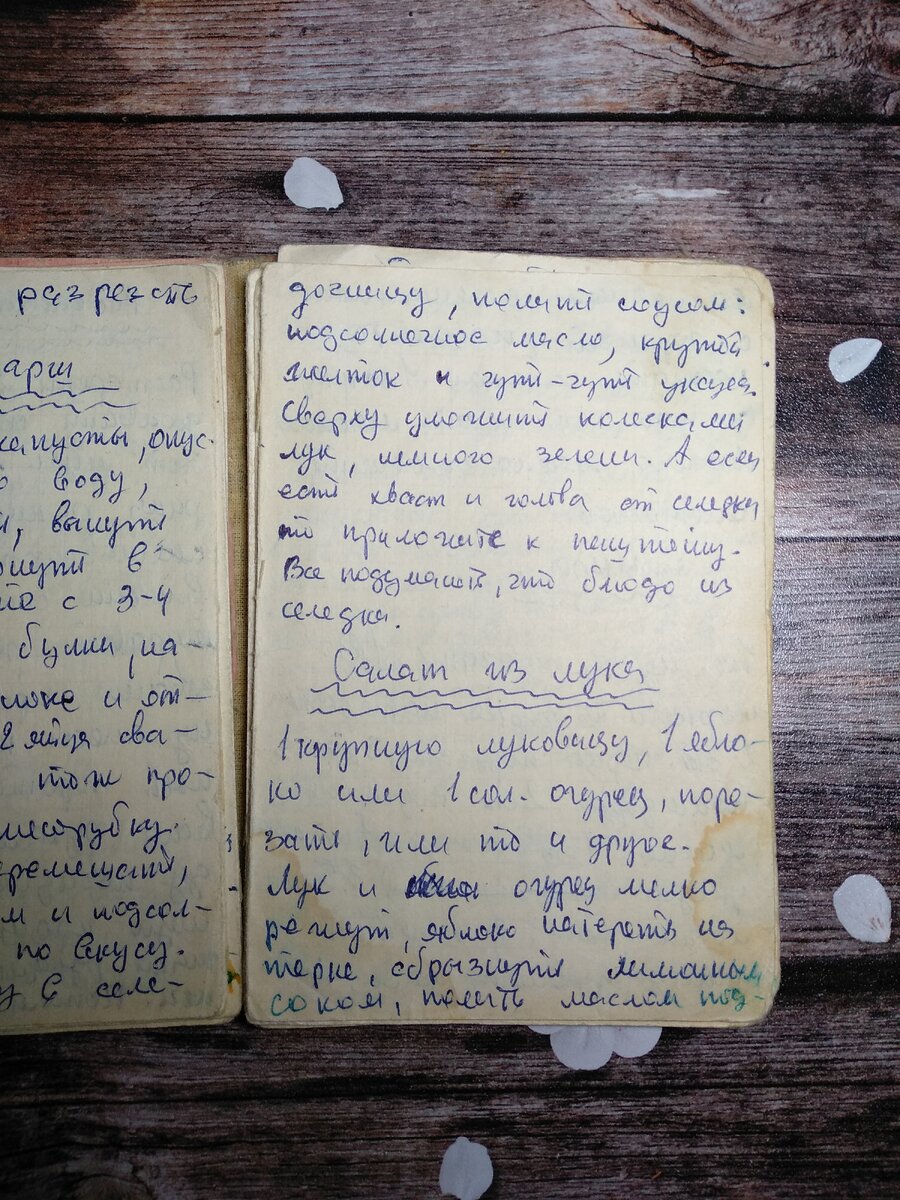 разрезать
арш
капусты, опус-
воду,
, вынуть
в
с 3-4
булки, на-
и от-
2 яйца сва-
тож про-
мясорубку.
еремешать,
м и подсол-
по вкусу.
у в селе-
дочницу, полить соусом:
подсолнечное масло, крутой
желток и чуть-чуть уксуса.
Сверху уложить колесками
лук, немного зелени. А если
есть хвост и голова от селедки
то приложите к паштету.
Все подумают, что блюдо из
селедки.
Салат из лука
1 крупную луковицу, 1 ябло-
ко или 1 сол. огурец, поре-
зать, или то и другое.
Лук и огурец мелко
режут, яблоко натереть на
терке, сбрызнуть лимонным
соком, полить маслом под-